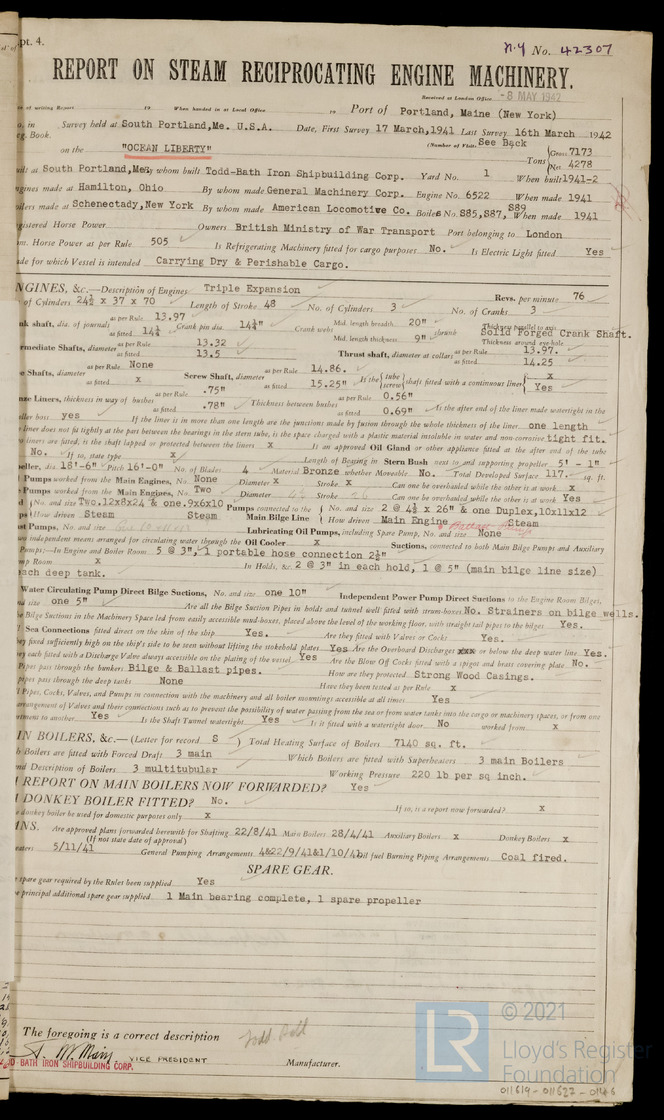 pt. 4.
n.y No. 42307
REPORT ON STEAM RECIPROCATING ENGINE MACHINERY.
Received at London Office -8 MAY 1942
of writing Report 19 When handed in at Local Office 19 Port of Portland, Maine (New York)
in Survey held at South Portland,Me. U.S.A. Date, First Survey 17 March,1941 Last Survey 16th March 1942
eg. Book. (Number of Visits See Back
on the "OCEAN LIBERTY" Tons Gross 7173 Net 4278
uilt at South Portland,Me. By whom built Todd-Bath Iron Shipbuilding Corp. Yard No. 1 When built 1941-2
ngines made at Hamilton, Ohio By whom made General Machinery Corp. Engine No. 6522 When made 1941
oilers made at Schenectady,New York By whom made American Locomotive Co. Boiler No. S85,S87, S89 When made 1941
egistered Horse Power Owners British Ministry of War Transport Port belonging to London
om. Horse Power as per Rule 505 Is Refrigerating Machinery fitted for cargo purposes No. Is Electric Light fitted Yes
ade for which Vessel is intended Carrying Dry & Perishable Cargo.
NGINES, &c.—Description of Engines Triple Expansion Revs. per minute 76
of Cylinders 24½ x 37 x 70 Length of Stroke 48 No. of Cylinders 3 No. of Cranks 3
nk shaft, dia. of journals as per Rule 13.97 as fitted 14¼ Crank pin dia. 14¼" Crank webs Mid. length breadth 20" Mid. length thickness 9" shrunk Thickness parallel to axis Solid Forged Crank Shaft. Thickness around eye-hole
rmediate Shafts, diameter as per Rule 13.32 as fitted 13.5 Thrust shaft, diameter at collars as per Rule 13.97. as fitted 14.25
e Shafts, diameter as per Rule None as fitted x Screw Shaft, diameter as per Rule 14.86. as fitted 15.25" Is the tube screw shaft fitted with a continuous liner x Yes
nze Liners, thickness in way of bushes as per Rule .75" as fitted .78" Thickness between bushes as per Rule 0.56" as fitted 0.69" Is the after end of the liner made watertight in the
eller boss yes If the liner is in more than one length are the junctions made by fusion through the whole thickness of the liner one length
e liner does not fit tightly at the part between the bearings in the stern tube, is the space charged with a plastic material insoluble in water and non-corrosive tight fit.
o liners are fitted, is the shaft lapped or protected between the liners x Is an approved Oil Gland or other appliance fitted at the after end of the tube
No. If so, state type x Length of Bearing in Stern Bush next to and supporting propeller 5' - 1"
peller, dia. 18'-6" Pitch 16'-0" No. of Blades 4 Material Bronze whether Moveable No. Total Developed Surface 117. sq. ft.
Pumps worked from the Main Engines, No. None Diameter x Stroke x Can one be overhauled while the other is at work x
Pumps worked from the Main Engines, No. Two Diameter Stroke Can one be overhauled while the other is at work Yes
No. and size Two.12x8x24 & one.9x6x10 Pumps connected to the No. and size 2 @ 4½ x 26" & one Duplex,10x11x12
ps How driven Steam Steam Main Bilge Line How driven Main Engine Steam
ast Pumps, No. and size Lubricating Oil Pumps, including Spare Pump, No. and size None
wo independent means arranged for circulating water through the Oil Cooler x Suctions, connected to both Main Bilge Pumps and Auxiliary
Pumps:—In Engine and Boiler Room 5 @ 3", 1 portable hose connection 2½"
mp Room x In Holds, &c. 2 @ 3" in each hold, 1 @ 5" (main bilge line size)
each deep tank.
Water Circulating Pump Direct Bilge Suctions, No. and size one 10" Independent Power Pump Direct Suctions to the Engine Room Bilges,
nd size one 5" Are all the Bilge Suction Pipes in holds and tunnel well fitted with strum-boxes No. Strainers on bilge wells.
e Bilge Suctions in the Machinery Space led from easily accessible mud-boxes, placed above the level of the working floor, with straight tail pipes to the bilges Yes.
Sea Connections fitted direct on the skin of the ship Yes. Are they fitted with Valves or Cocks Yes.
ey fixed sufficiently high on the ship's side to be seen without lifting the stokehold plates Yes Are the Overboard Discharges xxx or below the deep water line Yes.
ey each fitted with a Discharge Valve always accessible on the plating of the vessel Yes Are the Blow Off Cocks fitted with a spigot and brass covering plate No.
Pipes pass through the bunkers Bilge & Ballast pipes. How are they protected Strong Wood Casings.
pipes pass through the deep tanks None Have they been tested as per Rule x
l Pipes, Cocks, Valves, and Pumps in connection with the machinery and all boiler mountings accessible at all times Yes
arrangement of Valves and their connections such as to prevent the possibility of water passing from the sea or from water tanks into the cargo or machinery spaces, or from one
rtment to another Yes Is the Shaft Tunnel watertight Yes Is it fitted with a watertight door No worked from x
IN BOILERS, &c.—(Letter for record S ) Total Heating Surface of Boilers 7140 sq. ft.
h Boilers are fitted with Forced Draft 3 main Which Boilers are fitted with Superheaters 3 main Boilers
nd Description of Boilers 3 multitubular Working Pressure 220 lb per sq inch.
REPORT ON MAIN BOILERS NOW FORWARDED? Yes
DONKEY BOILER FITTED? No. If so, is a report now forwarded? x
e donkey boiler be used for domestic purposes only x
ANS. Are approved plans forwarded herewith for Shafting 22/8/41 Main Boilers 28/4/41 Auxiliary Boilers x Donkey Boilers x
(If not state date of approval)
eaters 5/11/41 General Pumping Arrangements 4&22/9/41&1/10/41 Oil fuel Burning Piping Arrangements Coal fired.
SPARE GEAR.
e spare gear required by the Rules been supplied Yes
e principal additional spare gear supplied 1 Main bearing complete, 1 spare propeller
The foregoing is a correct description
VICE PRESIDENT
D-BATH IRON SHIPBUILDING CORP. Manufacturer.
LR © 2021
Lloyd's Register
Foundation
011619-011627-0146